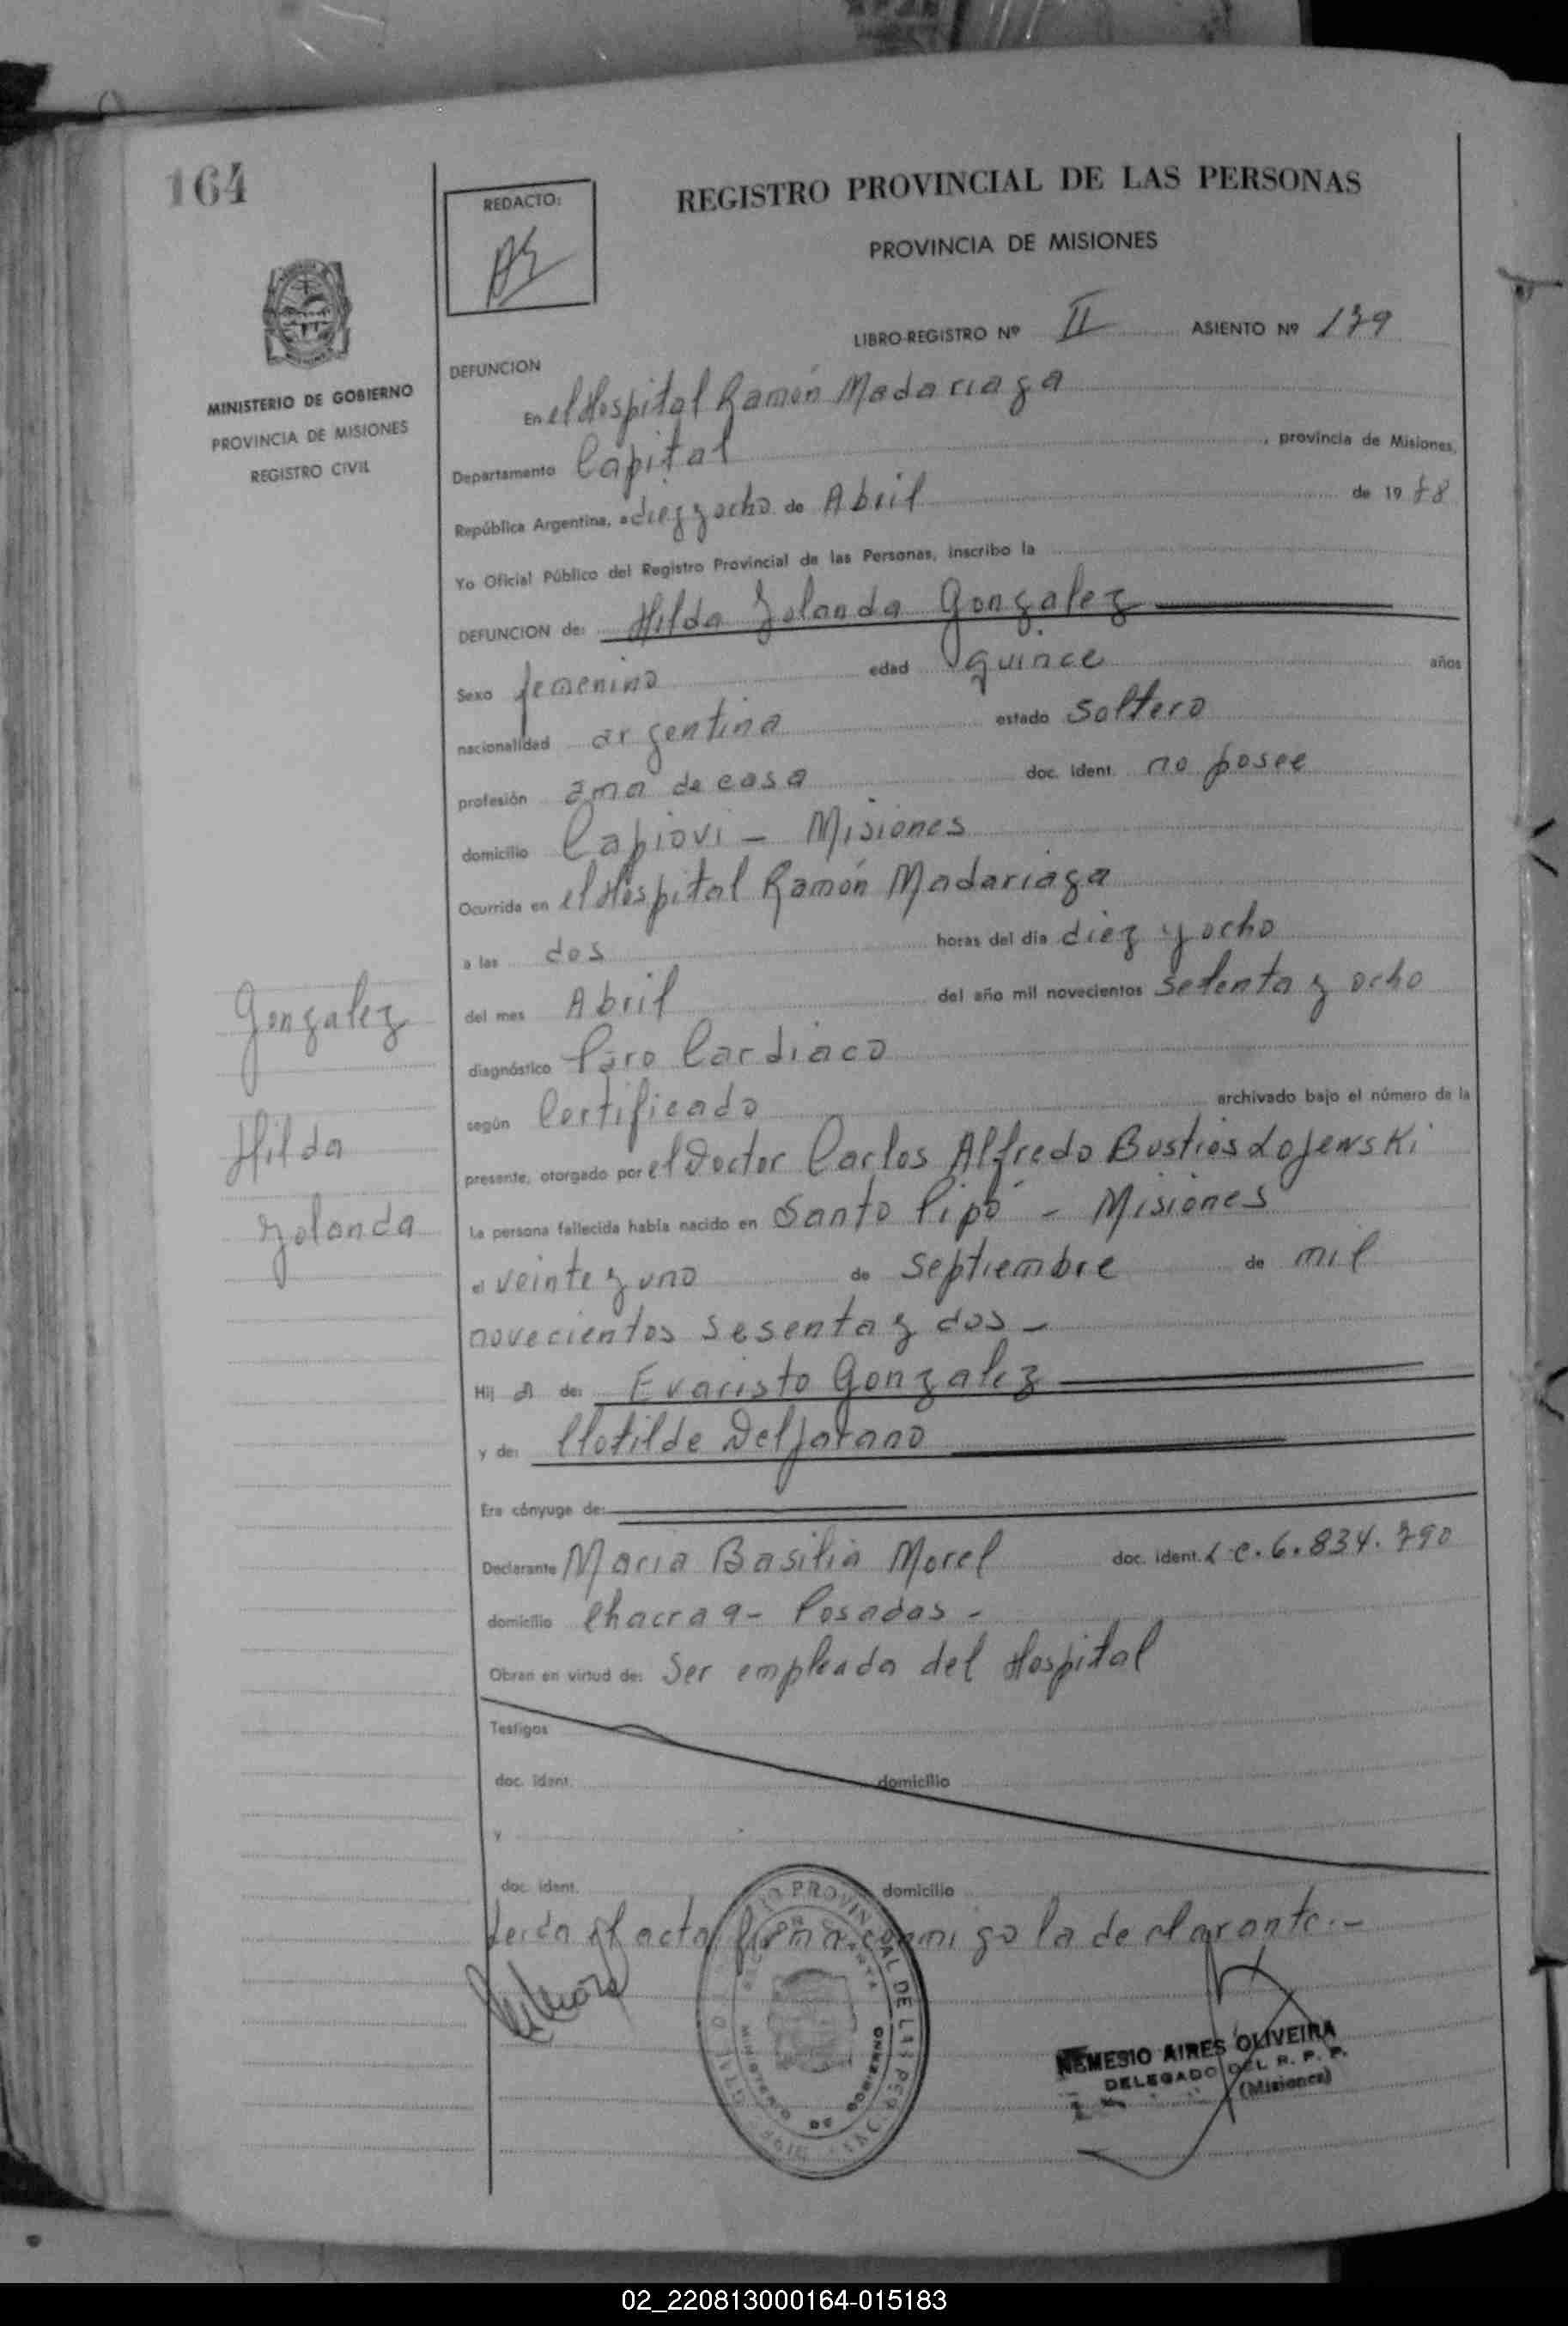 164
REDACTO:
REGISTRO PROVINCIAL DE LAS PERSONAS
PROVINCIA DE MISIONES
LIBRO-REGISTRO Nº II ASIENTO Nº 179
MINISTERIO DE GOBIERNO
PROVINCIA DE MISIONES
REGISTRO CIVIL
DEFUNCION
En el Hospital Ramón Madariaga
Departamento Capital, provincia de Misiones,
República Argentina, a diez y ocho de Abril de 1978
Yo Oficial Público del Registro Provincial de las Personas, inscribo la
DEFUNCION de: Hilda Yolanda Gonzalez
Sexo femenino edad quince años
nacionalidad argentina estado soltero
profesión ama de casa doc. ident. no posee
domicilio Capiovi - Misiones
Ocurrida en el Hospital Ramón Madariaga
a las dos horas del día diez y ocho
del mes Abril del año mil novecientos setenta y ocho
diagnóstico Paro Cardiaco
según Certificado archivado bajo el número de la
presente, otorgado por el Doctor Carlos Alfredo Bustios Lojewski
La persona fallecida había nacido en Santo Pipó - Misiones
el veinte y uno de septiembre de mil
novecientos sesenta y dos -
Hij a de: Evaristo Gonzalez
y de: Clotilde Deljarano
Era cónyuge de:
Declarante Maria Basilia Morel doc. ident. L.C. 6.834.790
domicilio Chacra 9 - Posadas -
Obran en virtud de: Ser empleada del Hospital
Testigos
doc. ident. domicilio
y
doc. ident. domicilio
Leida el acta firma conmigo la declarante.-
Gonzalez
Hilda
Yolanda
NEMESIO AIRES OLIVEIRA
DELEGADO DEL R. P. P.
(Misiones)
MINISTERIO DE GOBIERNO
02_220813000164-015183